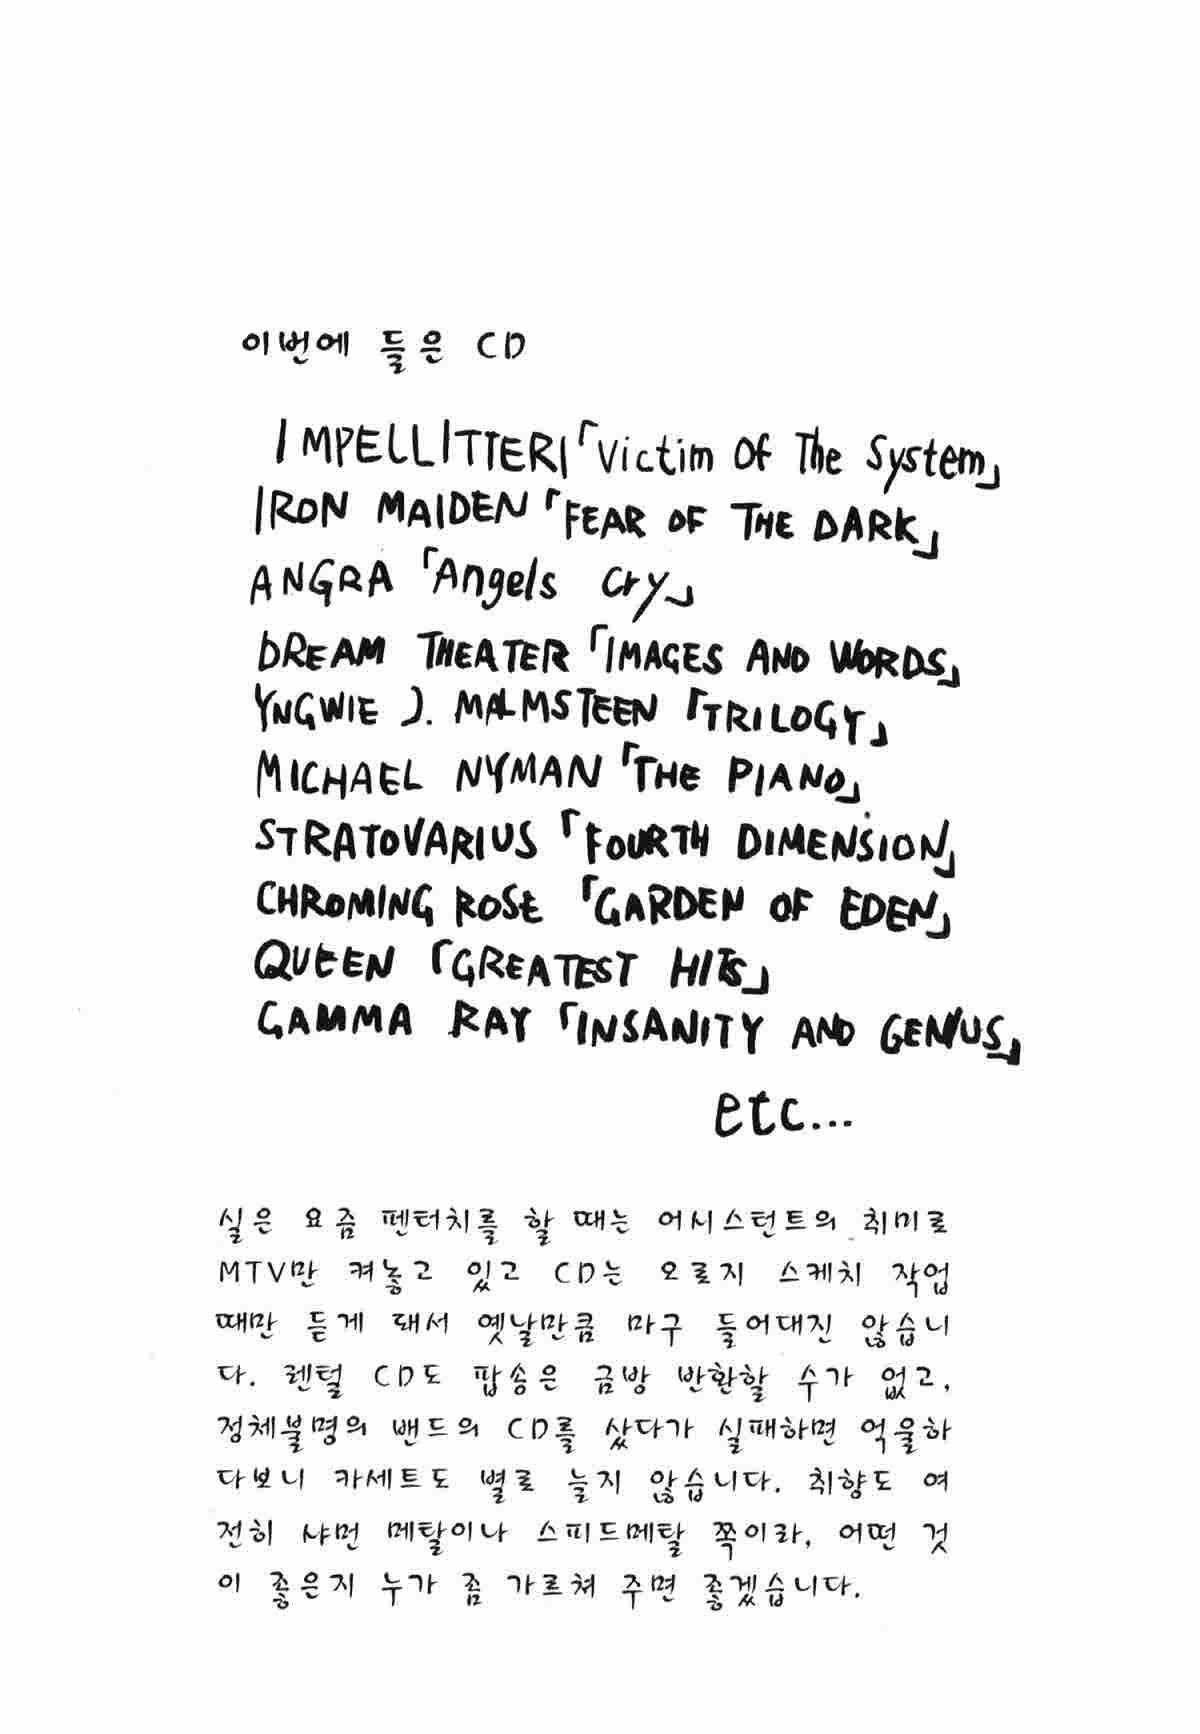 이번에 들은 CD
IMPELLITTERI「Victim Of The System」
IRON MAIDEN「FEAR OF THE DARK」
ANGRA「Angels Cry」
DREAM THEATER「IMAGES AND WORDS」
YNGWIE J. MALMSTEEN「TRILOGY」
MICHAEL NYMAN「THE PIANO」
STRATOVARIUS「FOURTH DIMENSION」
CHROMING ROSE「GARDEN OF EDEN」
QUEEN「GREATEST HITS」
GAMMA RAY「INSANITY AND GENIUS」
etc...
실은 요즘 펜터치를 할 때는 어시스턴트의 취미로
MTV만 켜놓고 있고 CD는 오로지 스케치 작업
때만 듣게 돼서 옛날만큼 마구 들어대진 않습니
다. 렌털 CD도 팝송은 금방 반환할 수가 없고,
정체불명의 밴드의 CD를 샀다가 실패하면 억울하
다보니 카세트도 별로 늘지 않습니다. 취향도 여
전히 샤먼 메탈이나 스피드메탈 쪽이라, 어떤 것
이 좋은지 누가 좀 가르쳐 주면 좋겠습니다.